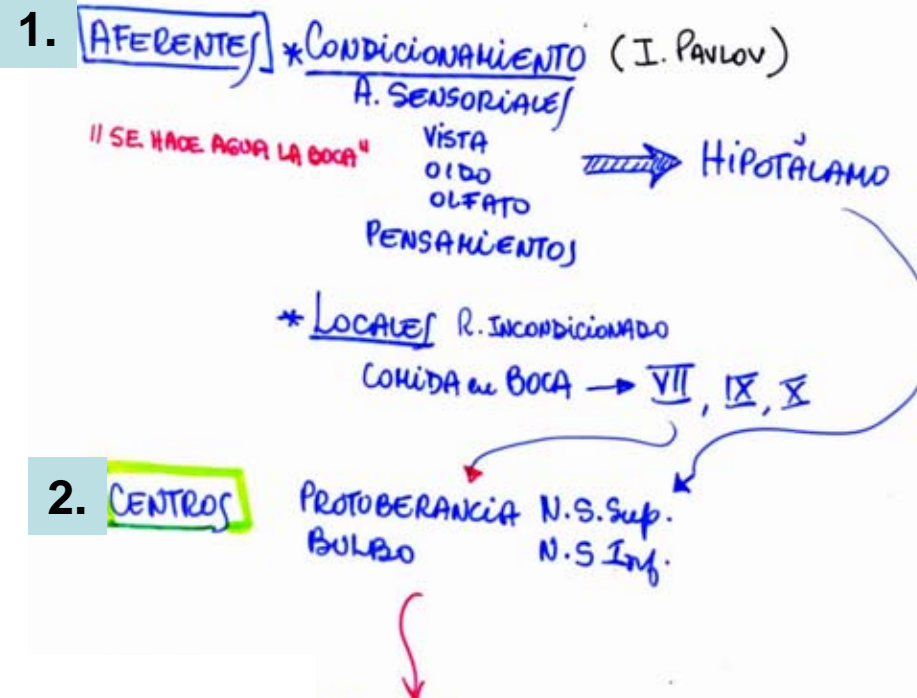 1. AFERENTES * CONDICIONAMIENTO (I. PAVLOV)
A. SENSORIALES
"SE HACE AGUA LA BOCA"
VISTA
OIDO
OLFATO
PENSAMIENTOS
HIPOTÁLAMO
* LOCALES R. INCONDICIONADO
COMIDA en BOCA → VII, IX, X
2. CENTROS PROTOBERANCIA N.S.Sup.
BULBO N.S Inf.